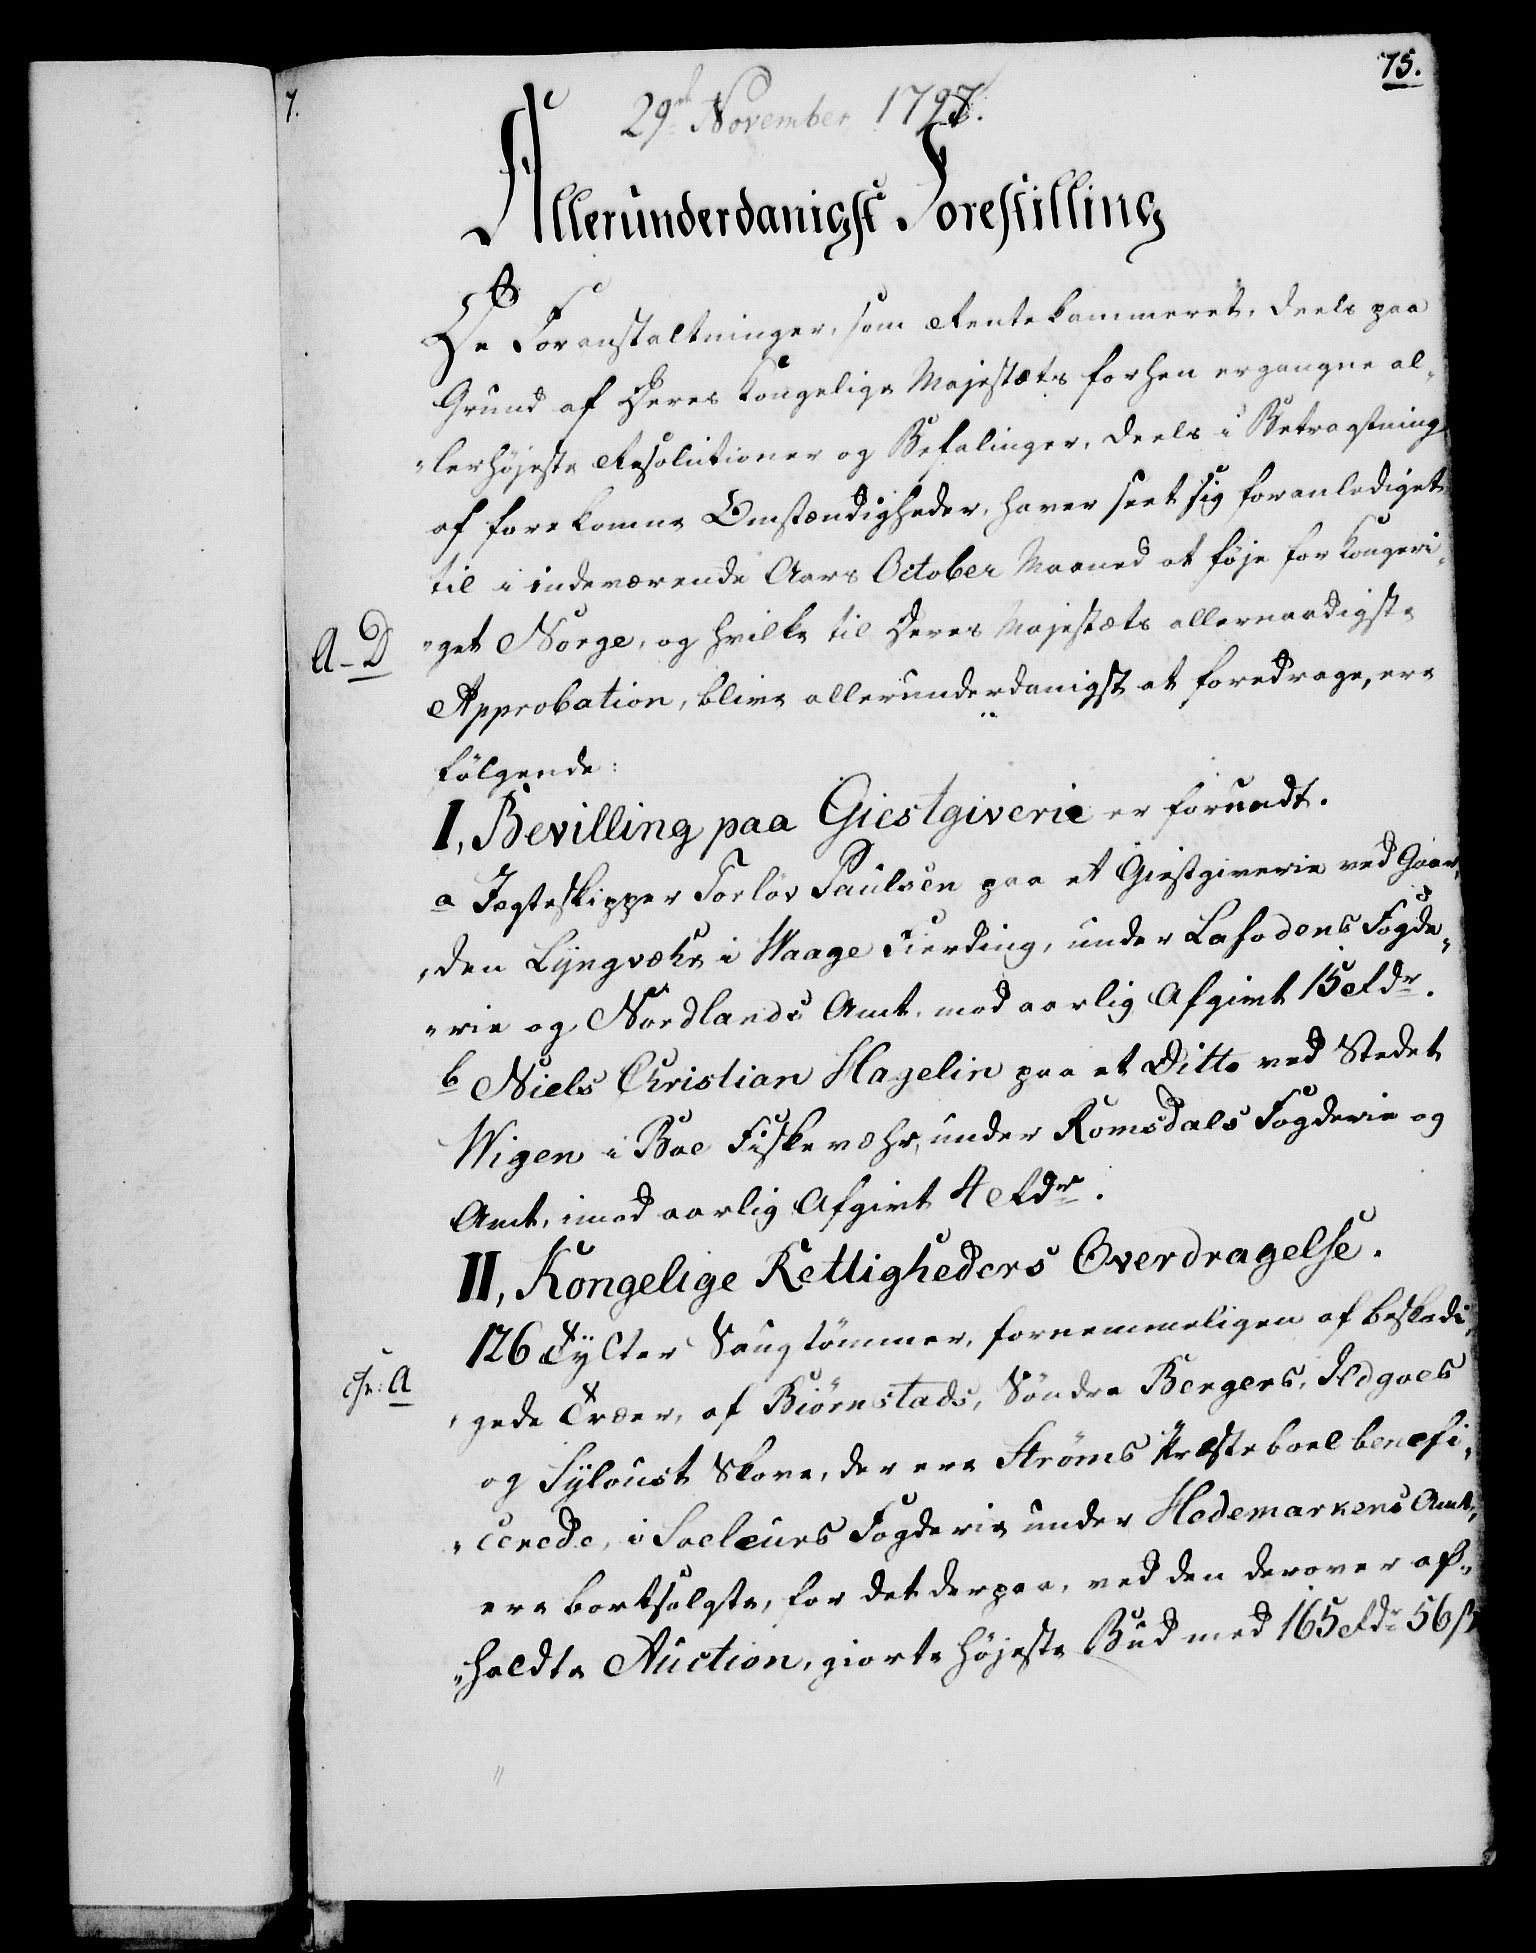 75.
7.
29de November 1797.
Allerunderdanigst Forestilling
De Foranstaltninger, som Rentekammeret, deels paa
Grund af Deres Kongelige Majestæts forhen ergangne al„
„lerhøjeste Resolutioner og Befalinger, deels i Betragtning
af forekomne Omstændigheder, haver seet sig foranlediget
til i indeværende Aars October Maaned at føje for Kongeri„
A-D
„get Norge, og hvilke til Deres Majestæts allernaadigste
Approbation, blive allerunderdanigst at foredrage, ere
følgende:
I, Bevilling paa Giestgiverie er forundt.
a Jægteskipper Torløv Paulsen paa et Giestgiverie ved Gaar„
„den Lyngvæhr i Waage Fierding, under Lofodens Fogde„
„rie og Nordlands Amt, mod aarlig Afgivt 15 Rdr.
b Niels Christian Hagelin paa et Ditto ved Stedet
Wigen i Boe Fiskevæhr, under Romsdals Fogderie og
Amt, imod aarlig Afgivt 4 Rdr.
II, Kongelige Rettigheders Overdragelse.
126 Tylter Saugtømmer, fornemmeligen af beskadi„
cfr: A
„gede Træer, af Biørnstads, Søndre Bergers, Ildgaes
og Syloust Skove, der ere Strøms Præsteboel benefi„
„cerede, i Soeleurs Fogderie under Hedemarkens Amt,
ere bortsolgte, for det derpaa, ved den derover af„
„holdte Auction, giorte højeste Bud med 165 Rdr 56 ß